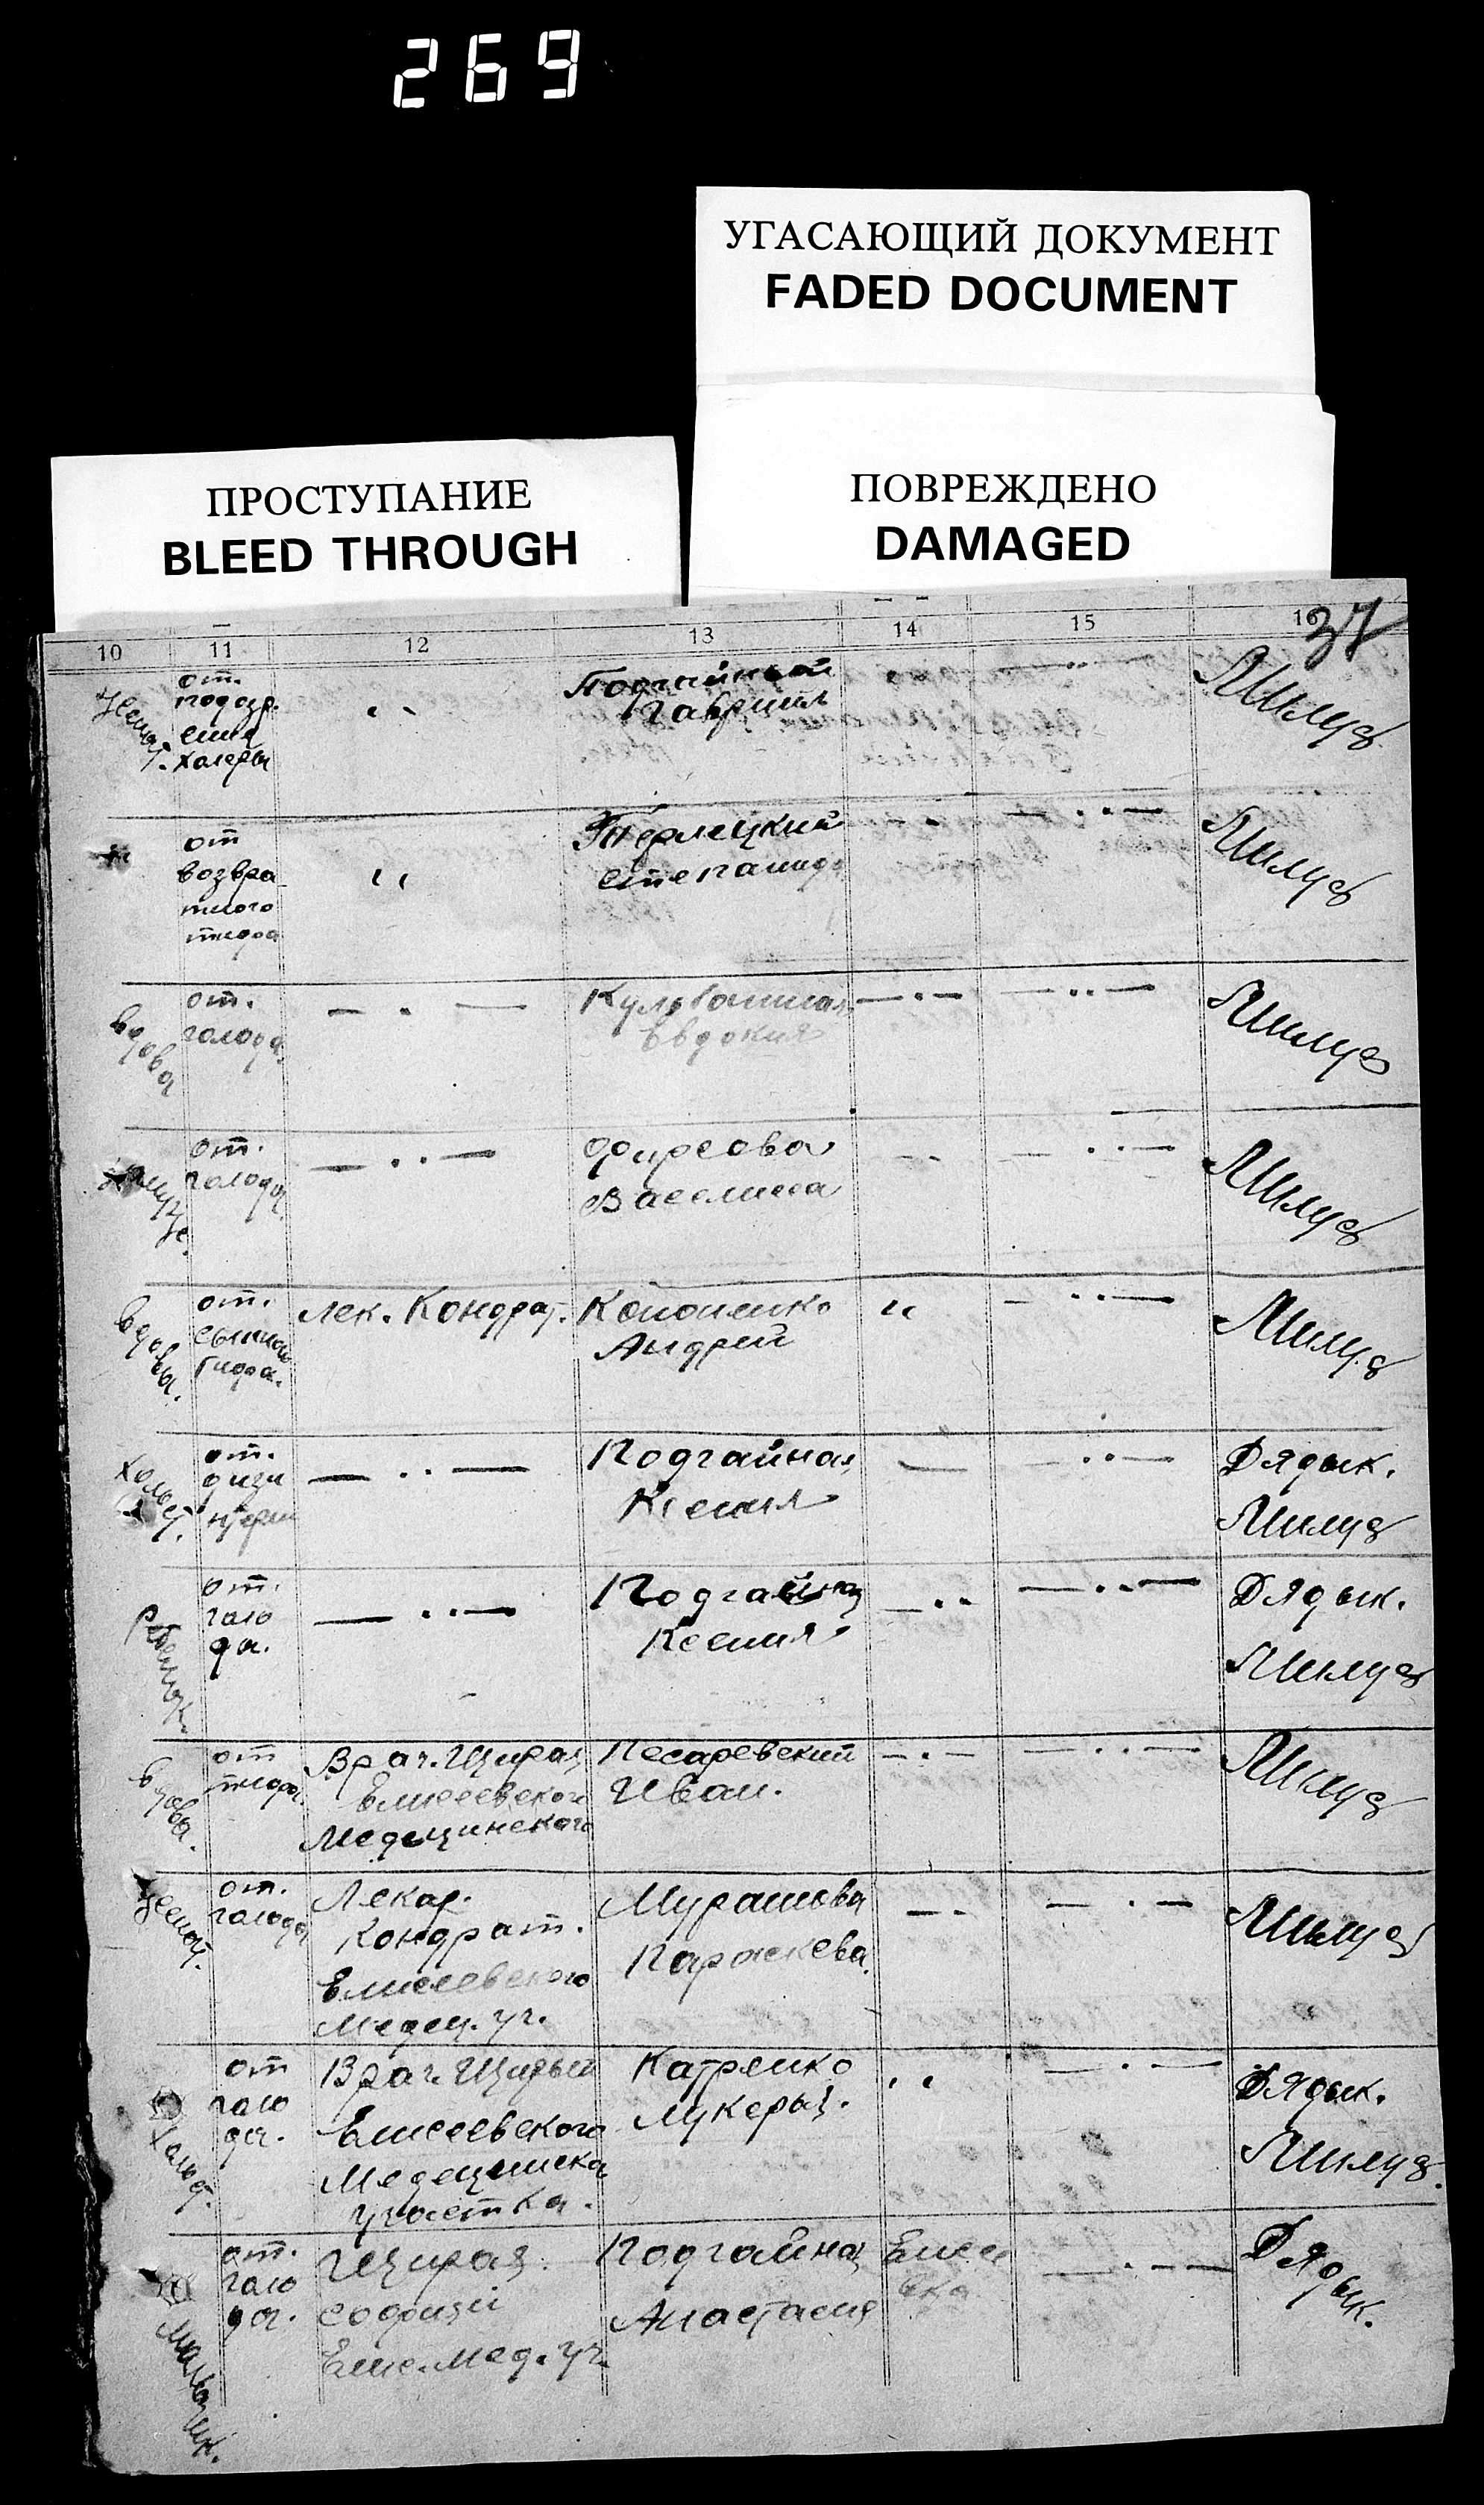 269
УГАСАЮЩИЙ ДОКУМЕНТ
FADED DOCUMENT
ПРОСТУПАНИЕ
BLEED THROUGH
ПОВРЕЖДЕНО
DAMAGED
37
10 11 12 13 14 15 16
Женат.
от.
подозр.
ения
холеры
"
Подгайный
Гавриил
— ·· —
от
возвра
тного
тифа
"
Терлецкий
Степанида
— ·· —
вдова
от.
голода.
— · —
Евдокия
— · —
— ·· —
от.
голода.
— ·· —
Фирсова
Василиса
— ·· —
вдовы.
от.
сыпного
тифа.
Лек. Кондрат.
Кононенко
Андрей
"
— ·· —
Холост.
от.
дизи
нтерии
— ·· —
Подгайная
Ксения
—
— ·· —
Дядык.
от.
голо
да.
— ·· —
Подгайная
Ксения
— ··
— ·· —
Дядык.
вдова.
от
тифа.
Врач. Щирая
Елисеевского
Медицинского
Песаревский
Иван.
— · —
— ·· —
Женат.
от.
голода
Лекар.
Кондрат.
Елисеевского
Медец. уч.
Мурашова
Параскева.
— ·
— · —
Холост.
от
голо
да.
Врач. Щирый
Елисеевского
Медецинска
участка.
Катренко
Лукерья.
"
— · —
Дядык.
Мальчик.
от.
голо
да.
Щирая
Софией
Елис. Мед. уч.
Подгайная
Анастасия
Елисе
вка
— · — —
Дядык.